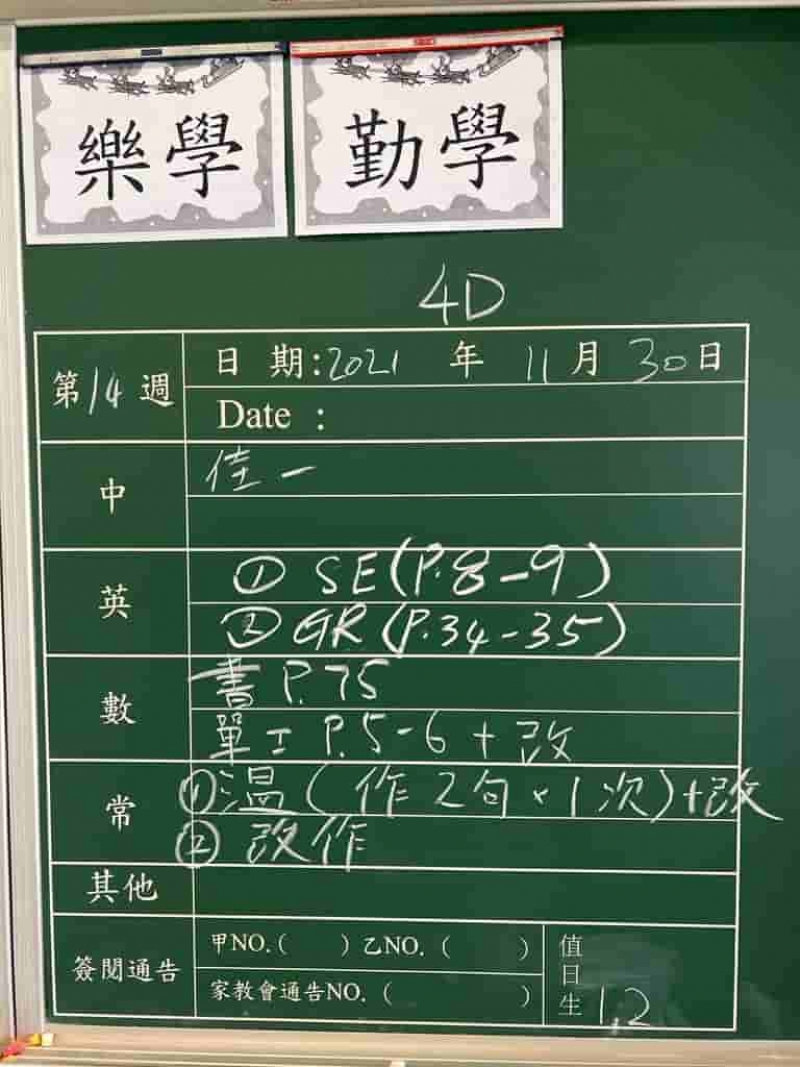 樂學
勤學
4D
第14週
日 期:2021 年 11 月 30日
Date :
中
佳一
英
① SE(P.8-9)
② GR(P.34-35)
數
書 P.75
單工 P.5-6 + 改
常
①溫(作2句×1次)+改
② 改作
其他
簽閱通告
甲NO.( )乙NO. ( )
家教會通告NO. ( )
值日生 1,2